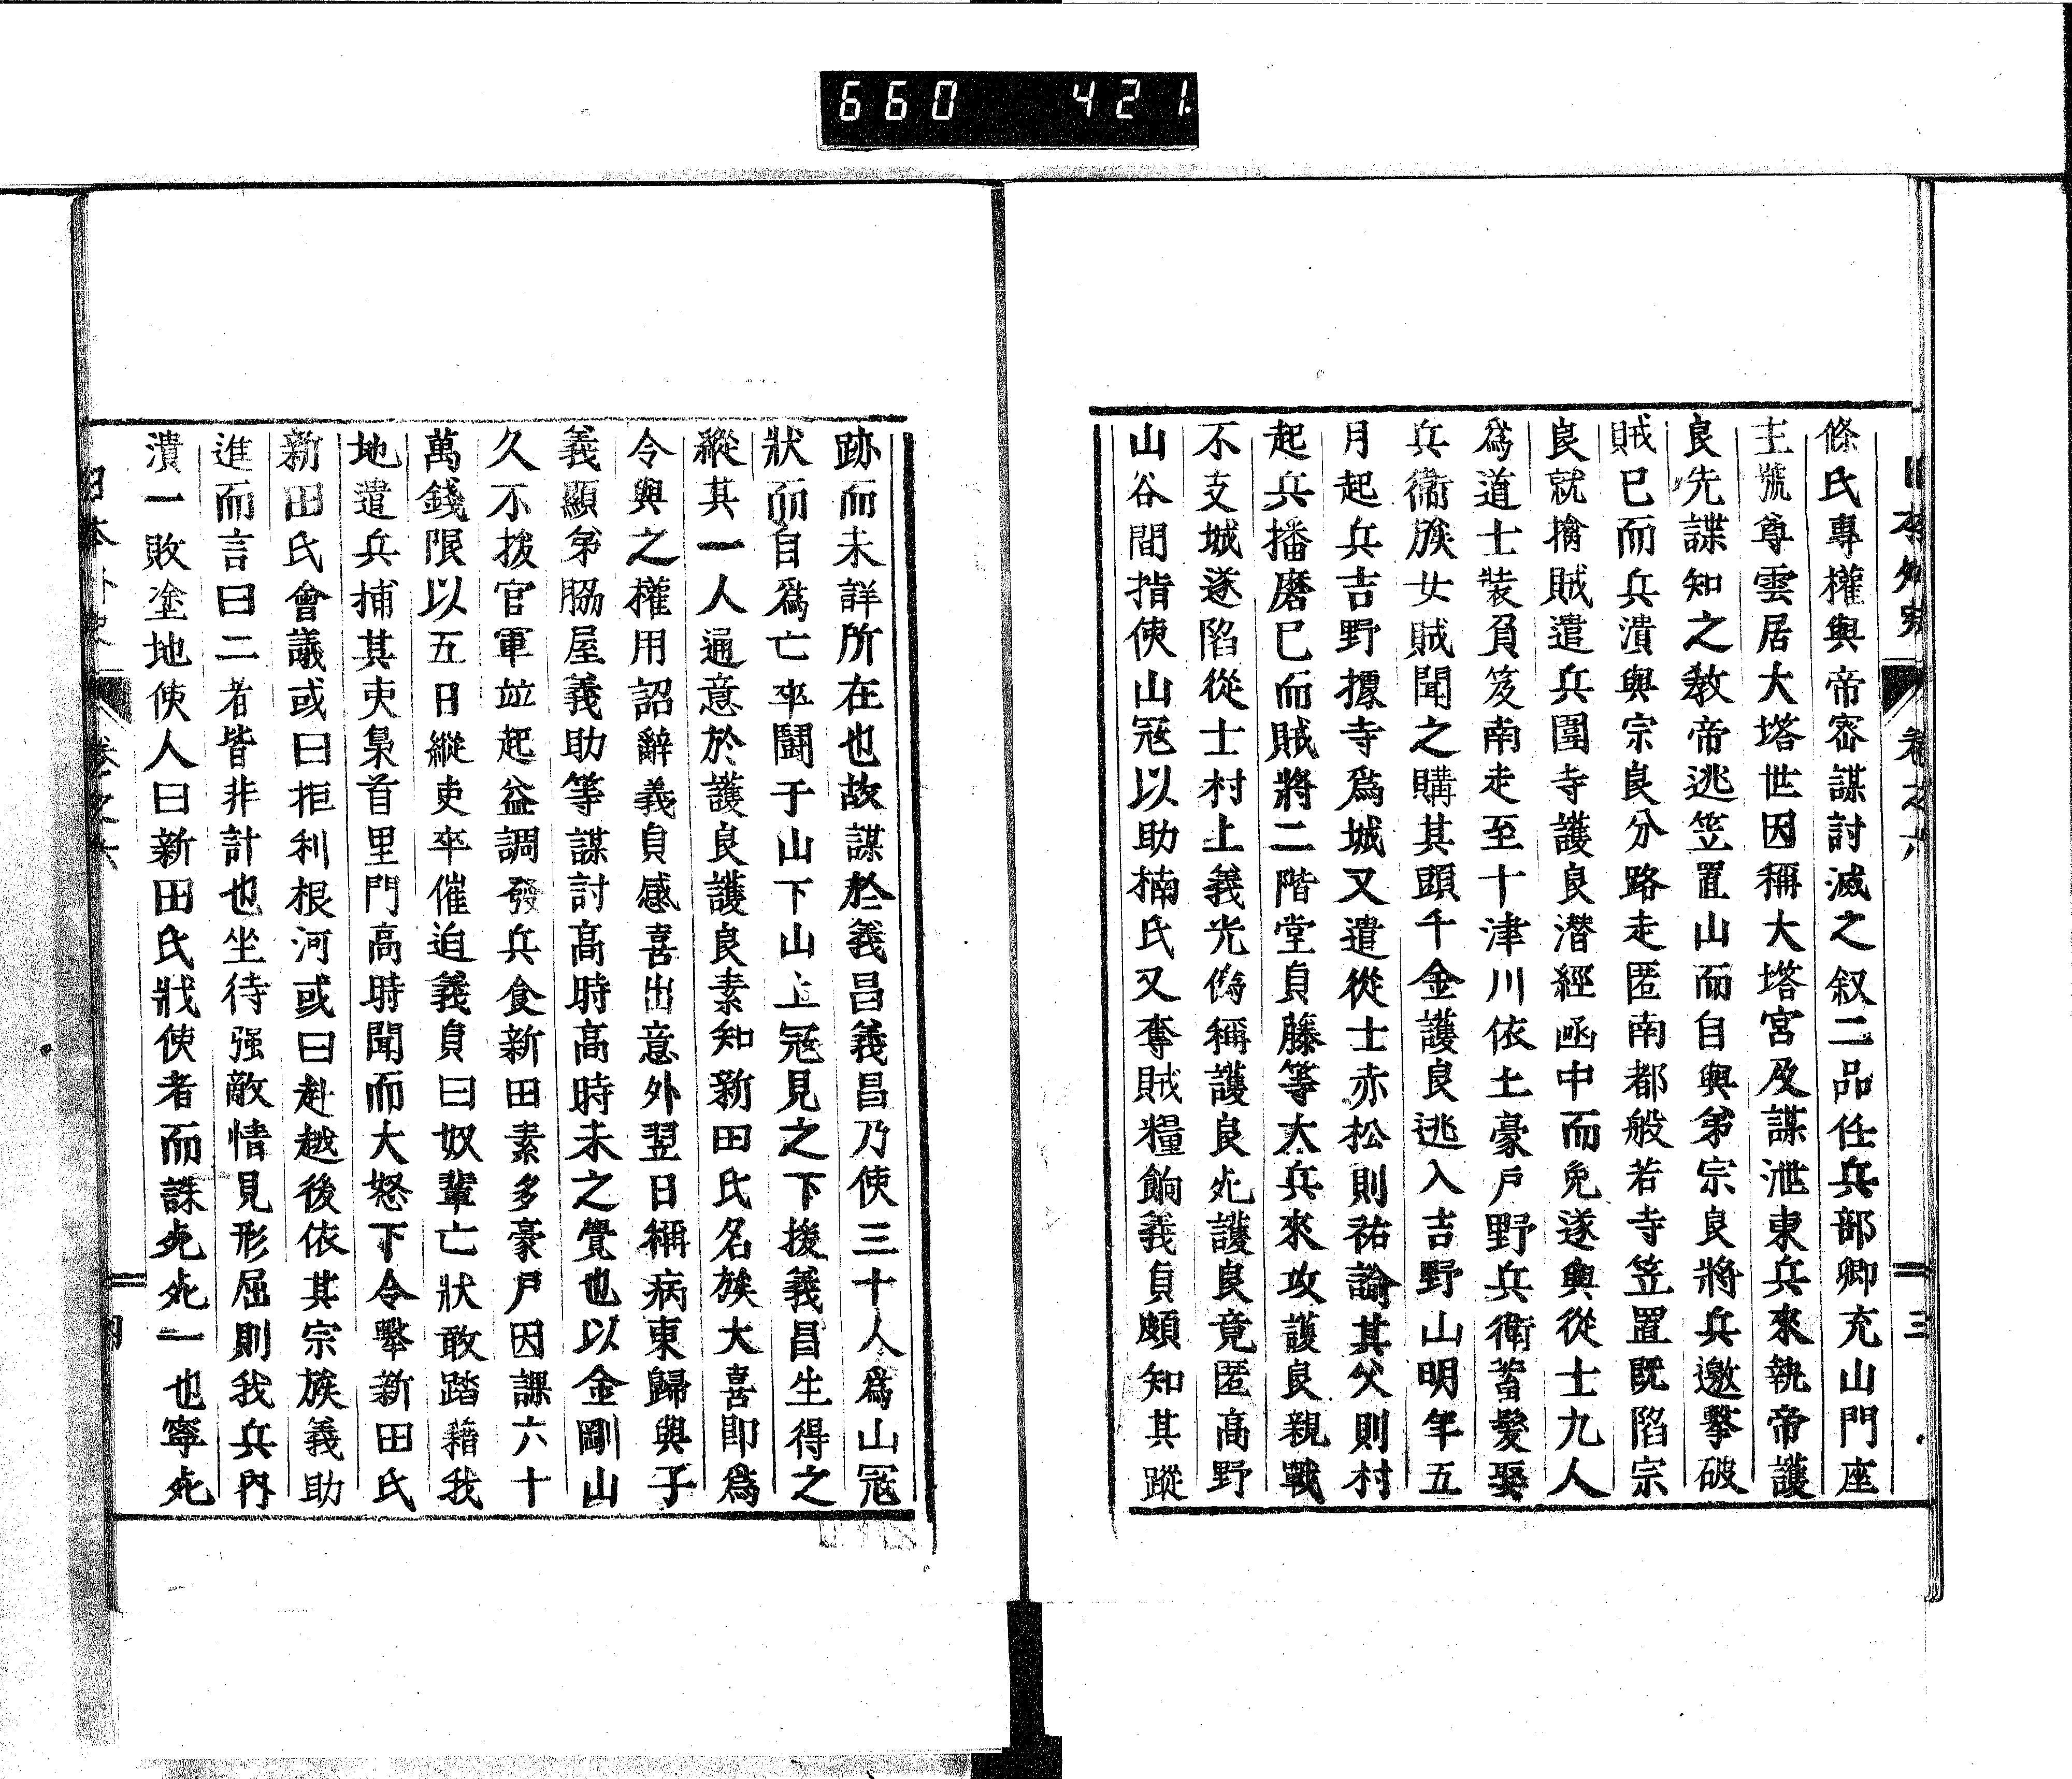 660 421
日本外史 卷之六 三
條氏專權與帝密謀討滅之叙二品任兵部卿充山門座
主號尊雲居大塔世因稱大塔宮及謀泄東兵來執帝護
良先諜知之教帝逃笠置山而自與弟宗良將兵邀擊破
賊已而兵潰與宗良分路走匿南都般若寺笠置既陷宗
良就擒賊遣兵圍寺護良潛經凾中而免遂與從士九人
爲道士裝負笈南走至十津川依土豪戶野兵衛蓄髮娶
兵衞族女賊聞之購其頭千金護良逃入吉野山明年五
月起兵吉野據寺爲城又遣從士赤松則祐諭其父則村
起兵播磨已而賊將二階堂貞藤等大兵來攻護良親戰
不支城遂陷從士村上義光僞稱護良死護良竟匿高野
山谷間指使山冦以助楠氏又奪賊糧餉義貞頗知其蹤
跡而未詳所在也故謀於義昌義昌乃使三十人爲山冦
狀而自爲亡卒鬪于山下山上冦見之下援義昌生得之
縱其一人通意於護良護良素知新田氏名族大喜卽爲
令與之權用詔辭義貞感喜出意外翌日稱病東歸與子
義顯弟脇屋義助等謀討高時高時未之覺也以金剛山
久不拔官軍並起益調發兵食新田素多豪戶因課六十
萬錢限以五日縱吏卒催迫義貞曰奴輩亡狀敢踏藉我
地遣兵捕其吏梟首里門高時聞而大怒下令擊新田氏
新田氏會議或曰拒利根河或曰赴越後依其宗族義助
進而言曰二者皆非計也坐待强敵情見形屈則我兵內
潰一敗塗地使人曰新田氏戕使者而誅死死一也寧死
日本外史 卷之六 四